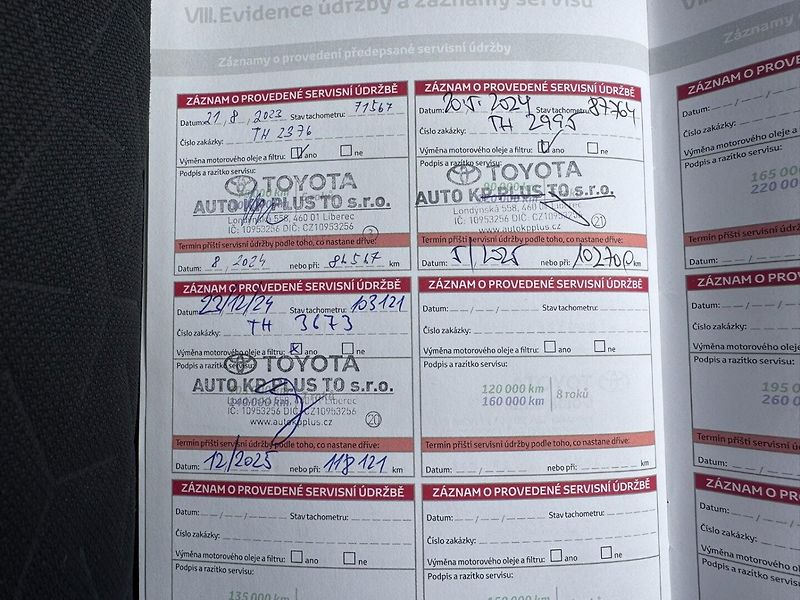 VIII. Evidence údržby a záznamy servisu
Záznamy o provedení předepsané servisní údržby
ZÁZNAM O PROVEDENÉ SERVISNÍ ÚDRŽBĚ
Datum: 21, 8, 2023 Stav tachometru: 71567
Číslo zakázky: TH 2376
Výměna motorového oleje a filtru: ano ne
Podpis a razítko servisu:
TOYOTA
AUTO KP PLUS TO s.r.o.
Londýnská 558, 460 01 Liberec
IČ: 10953256 DIČ: CZ10953256
Termín příští servisní údržby podle toho, co nastane dříve:
Datum: 8 / 2024 nebo při: 86567 km
ZÁZNAM O PROVEDENÉ SERVISNÍ ÚDRŽBĚ
Datum: 20.5. 2024 Stav tachometru: 87704
Číslo zakázky: TH 2995
Výměna motorového oleje a filtru: ano ne
Podpis a razítko servisu:
TOYOTA
AUTO KP PLUS TO s.r.o.
Londýnská 558, 460 01 Liberec
IČ: 10953256 DIČ: CZ10953256
www.autokpplus.cz
21
Termín příští servisní údržby podle toho, co nastane dříve:
Datum: 5/2025 nebo při: 102700 km
ZÁZNAM O PROVEDENÉ SERVISNÍ ÚDRŽBĚ
Datum: 23/12/24 Stav tachometru: 103121
Číslo zakázky: TH 3673
Výměna motorového oleje a filtru: ano ne
Podpis a razítko servisu:
TOYOTA
AUTO KP PLUS TO s.r.o.
Londýnská 558, 460 01 Liberec
IČ: 10953256 DIČ: CZ10953256
www.autokpplus.cz
20
Termín příští servisní údržby podle toho, co nastane dříve:
Datum: 12/2025 nebo při: 118121 km
ZÁZNAM O PROVEDENÉ SERVISNÍ ÚDRŽBĚ
Datum: / / Stav tachometru:
Číslo zakázky:
Výměna motorového oleje a filtru: ano ne
Podpis a razítko servisu:
120 000 km
160 000 km
8 roků
Termín příští servisní údržby podle toho, co nastane dříve:
Datum: / / nebo při: km
ZÁZNAM O PROVEDENÉ SERVISNÍ ÚDRŽBĚ
Datum: / / Stav tachometru:
Číslo zakázky:
Výměna motorového oleje a filtru: ano ne
Podpis a razítko servisu:
135 000 km
ZÁZNAM O PROVEDENÉ SERVISNÍ ÚDRŽBĚ
Datum: / / Stav tachometru:
Číslo zakázky:
Výměna motorového oleje a filtru: ano ne
Podpis a razítko servisu:
150 000 km
ZÁZNAM O PROVE
Datum: / /
Číslo zakázky:
Výměna motorového oleje a
Podpis a razítko servisu:
165 000
220 000
Termín příští servisní údržb
Datum: / /
ZÁZNAM O PRO
Datum: / /
Číslo zakázky:
Výměna motorového oleje
Podpis a razítko servisu:
195 0
260 0
Termín příští servisní údr
Datum: / /
ZÁZNAM O PR
Datum: / /
Číslo zakázky:
Výměna motorového ol
Podpis a razítko servisu: